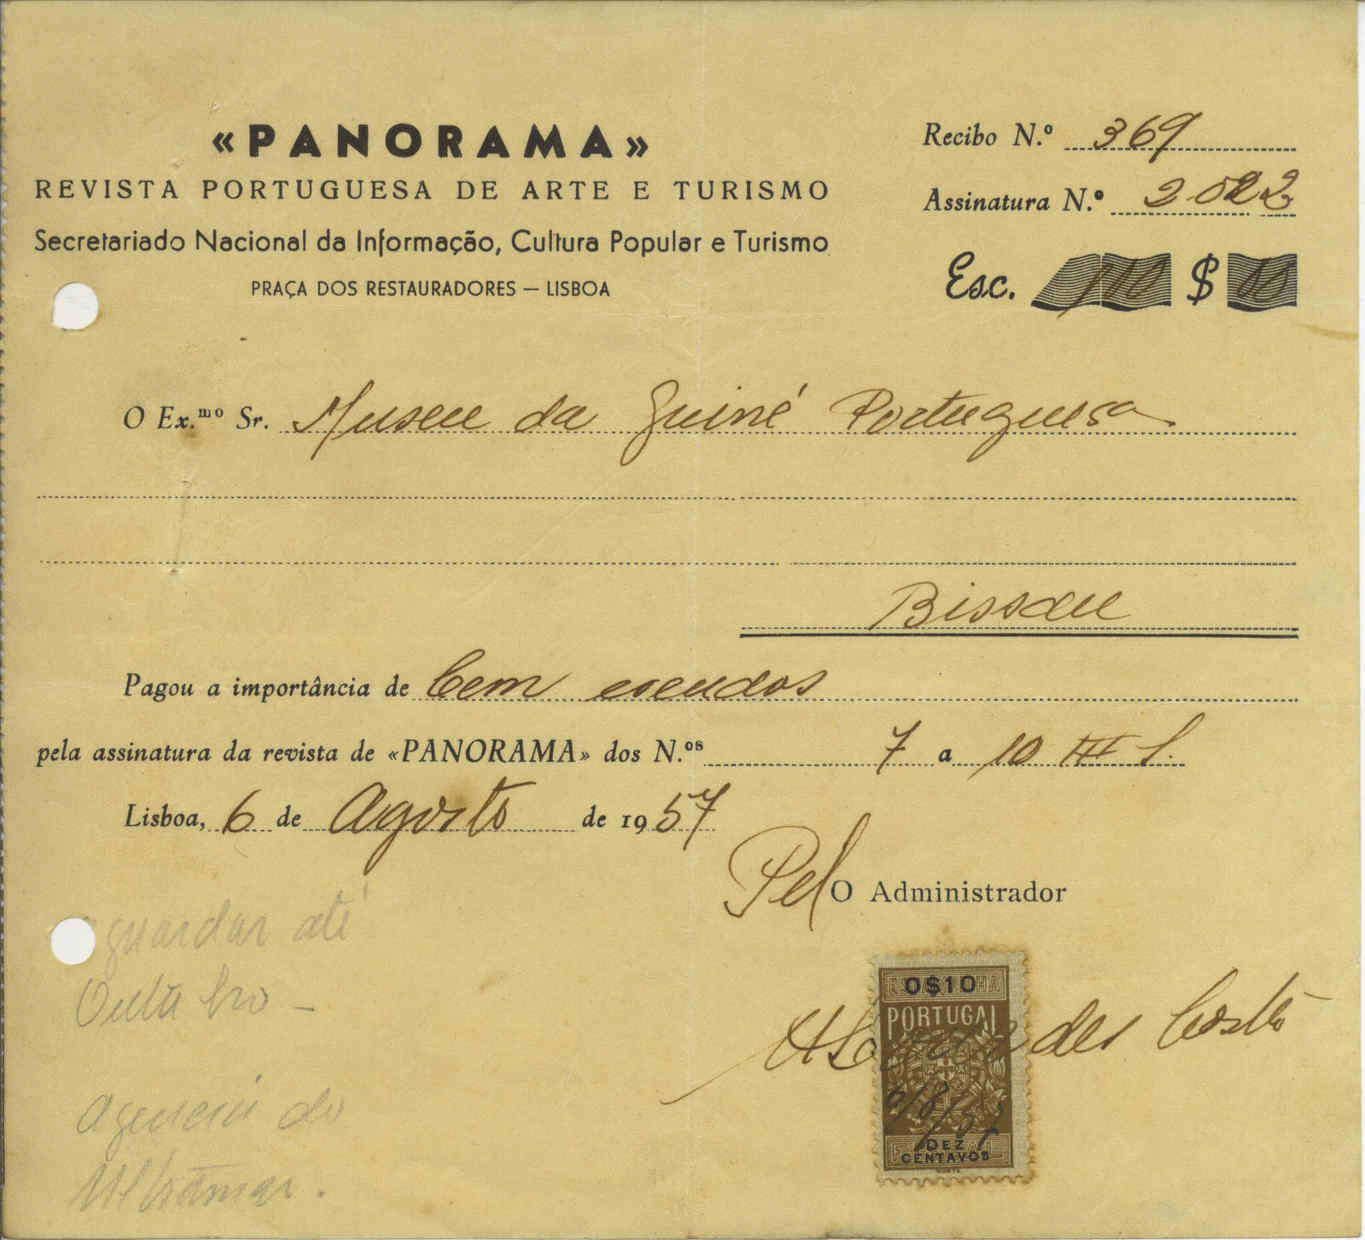 «PANORAMA»
REVISTA PORTUGUESA DE ARTE E TURISMO
Secretariado Nacional da Informação, Cultura Popular e Turismo
PRAÇA DOS RESTAURADORES — LISBOA
Recibo N.º 369
Assinatura N.º 2022
Esc. 100 $ 00
O Ex.mo Sr. Museu da Guiné Portuguesa
Bissau
Pagou a importância de Cem escudos
pela assinatura da revista de «PANORAMA» dos N.os 7 a 10 III S.
Lisboa, 6 de Agosto de 1957
Pel O Administrador
0$10
PORTUGAL
DEZ
CENTAVOS
Costa
aguardar até
Outubro -
Agencia do
Ultramar.